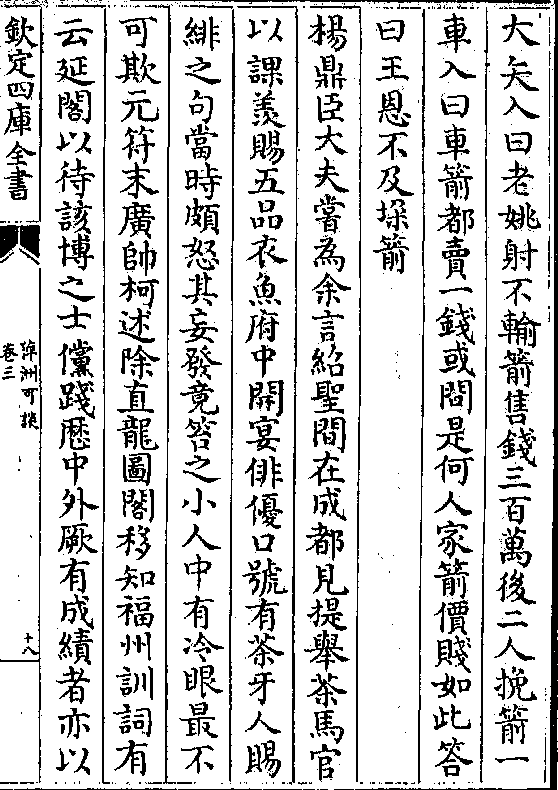 大矢入曰老姚射不輸箭售錢三百萬後二人挽箭一
車入曰車箭都賣一錢或問是何人家箭價賤如此答
曰王恩不及垜箭
楊鼎臣大夫嘗為余言紹聖間在成都見提舉茶馬官
以課羨賜五品衣魚府中開宴俳優口號有茶牙人賜
緋之句當時頗怒其妄發竟笞之小人中有冷眼最不
可欺元符末廣帥柯述除直龍圖閣移知福州訓詞有
云延閣以待該博之士儻踐歷中外厥有成績者亦以
欽定四庫全書
萍洲可談
卷三
十八